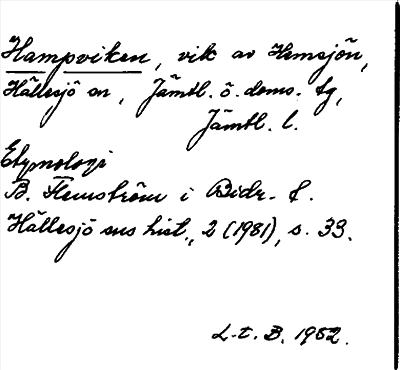 Hampviken, vik av Hemsjön,
Hällesjö sn, Jämtl. ö. doms. tg,
Jämtl. l.
Etymologi
B. Flemström i Bidr. t.
Hällesjö sns hist., 2 (1981), s. 33.
L-t. B. 1982.